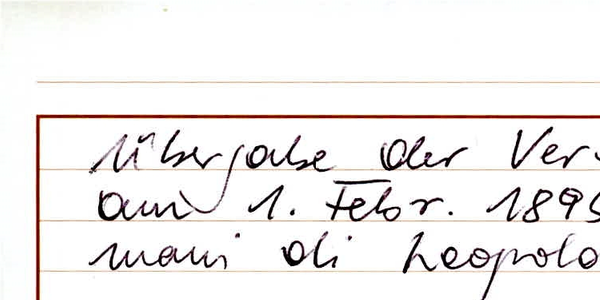 Übergabe der Ver-
am 1. Febr. 189
mani di Leopoldo